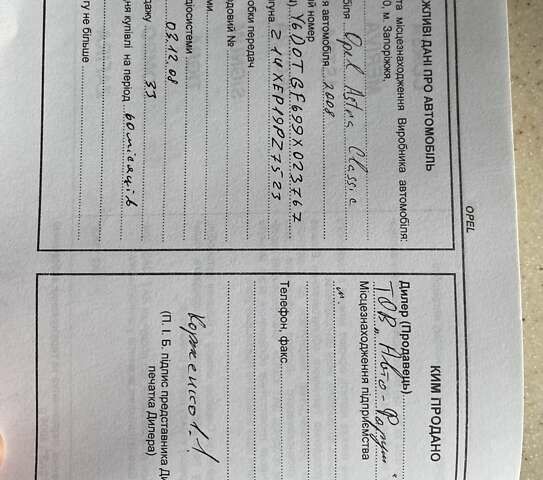 OPEL
ЖЛИВІ ДАНІ ПРО АВТОМОБІЛЬ
та місцезнаходження Виробника автомобіля:
0, м. Запоріжжя,
біля Opel Astra Classic
я автомобіля 2008
ий номер
Y6DOTGF699X023767
гуна Z14XEP19PZ7523
обки передач
довий №
ми
діосистеми
03.12.08
дажу 33
ня купівлі на період 60 місяців
гу не більше
КИМ ПРОДАНО
Дилер (Продавець)
ТОВ "Авто-Форум"
Місцезнаходження підприємства
м.
Телефон, факс
(П. І. Б. підпис представника Ди
печатка Дилера)